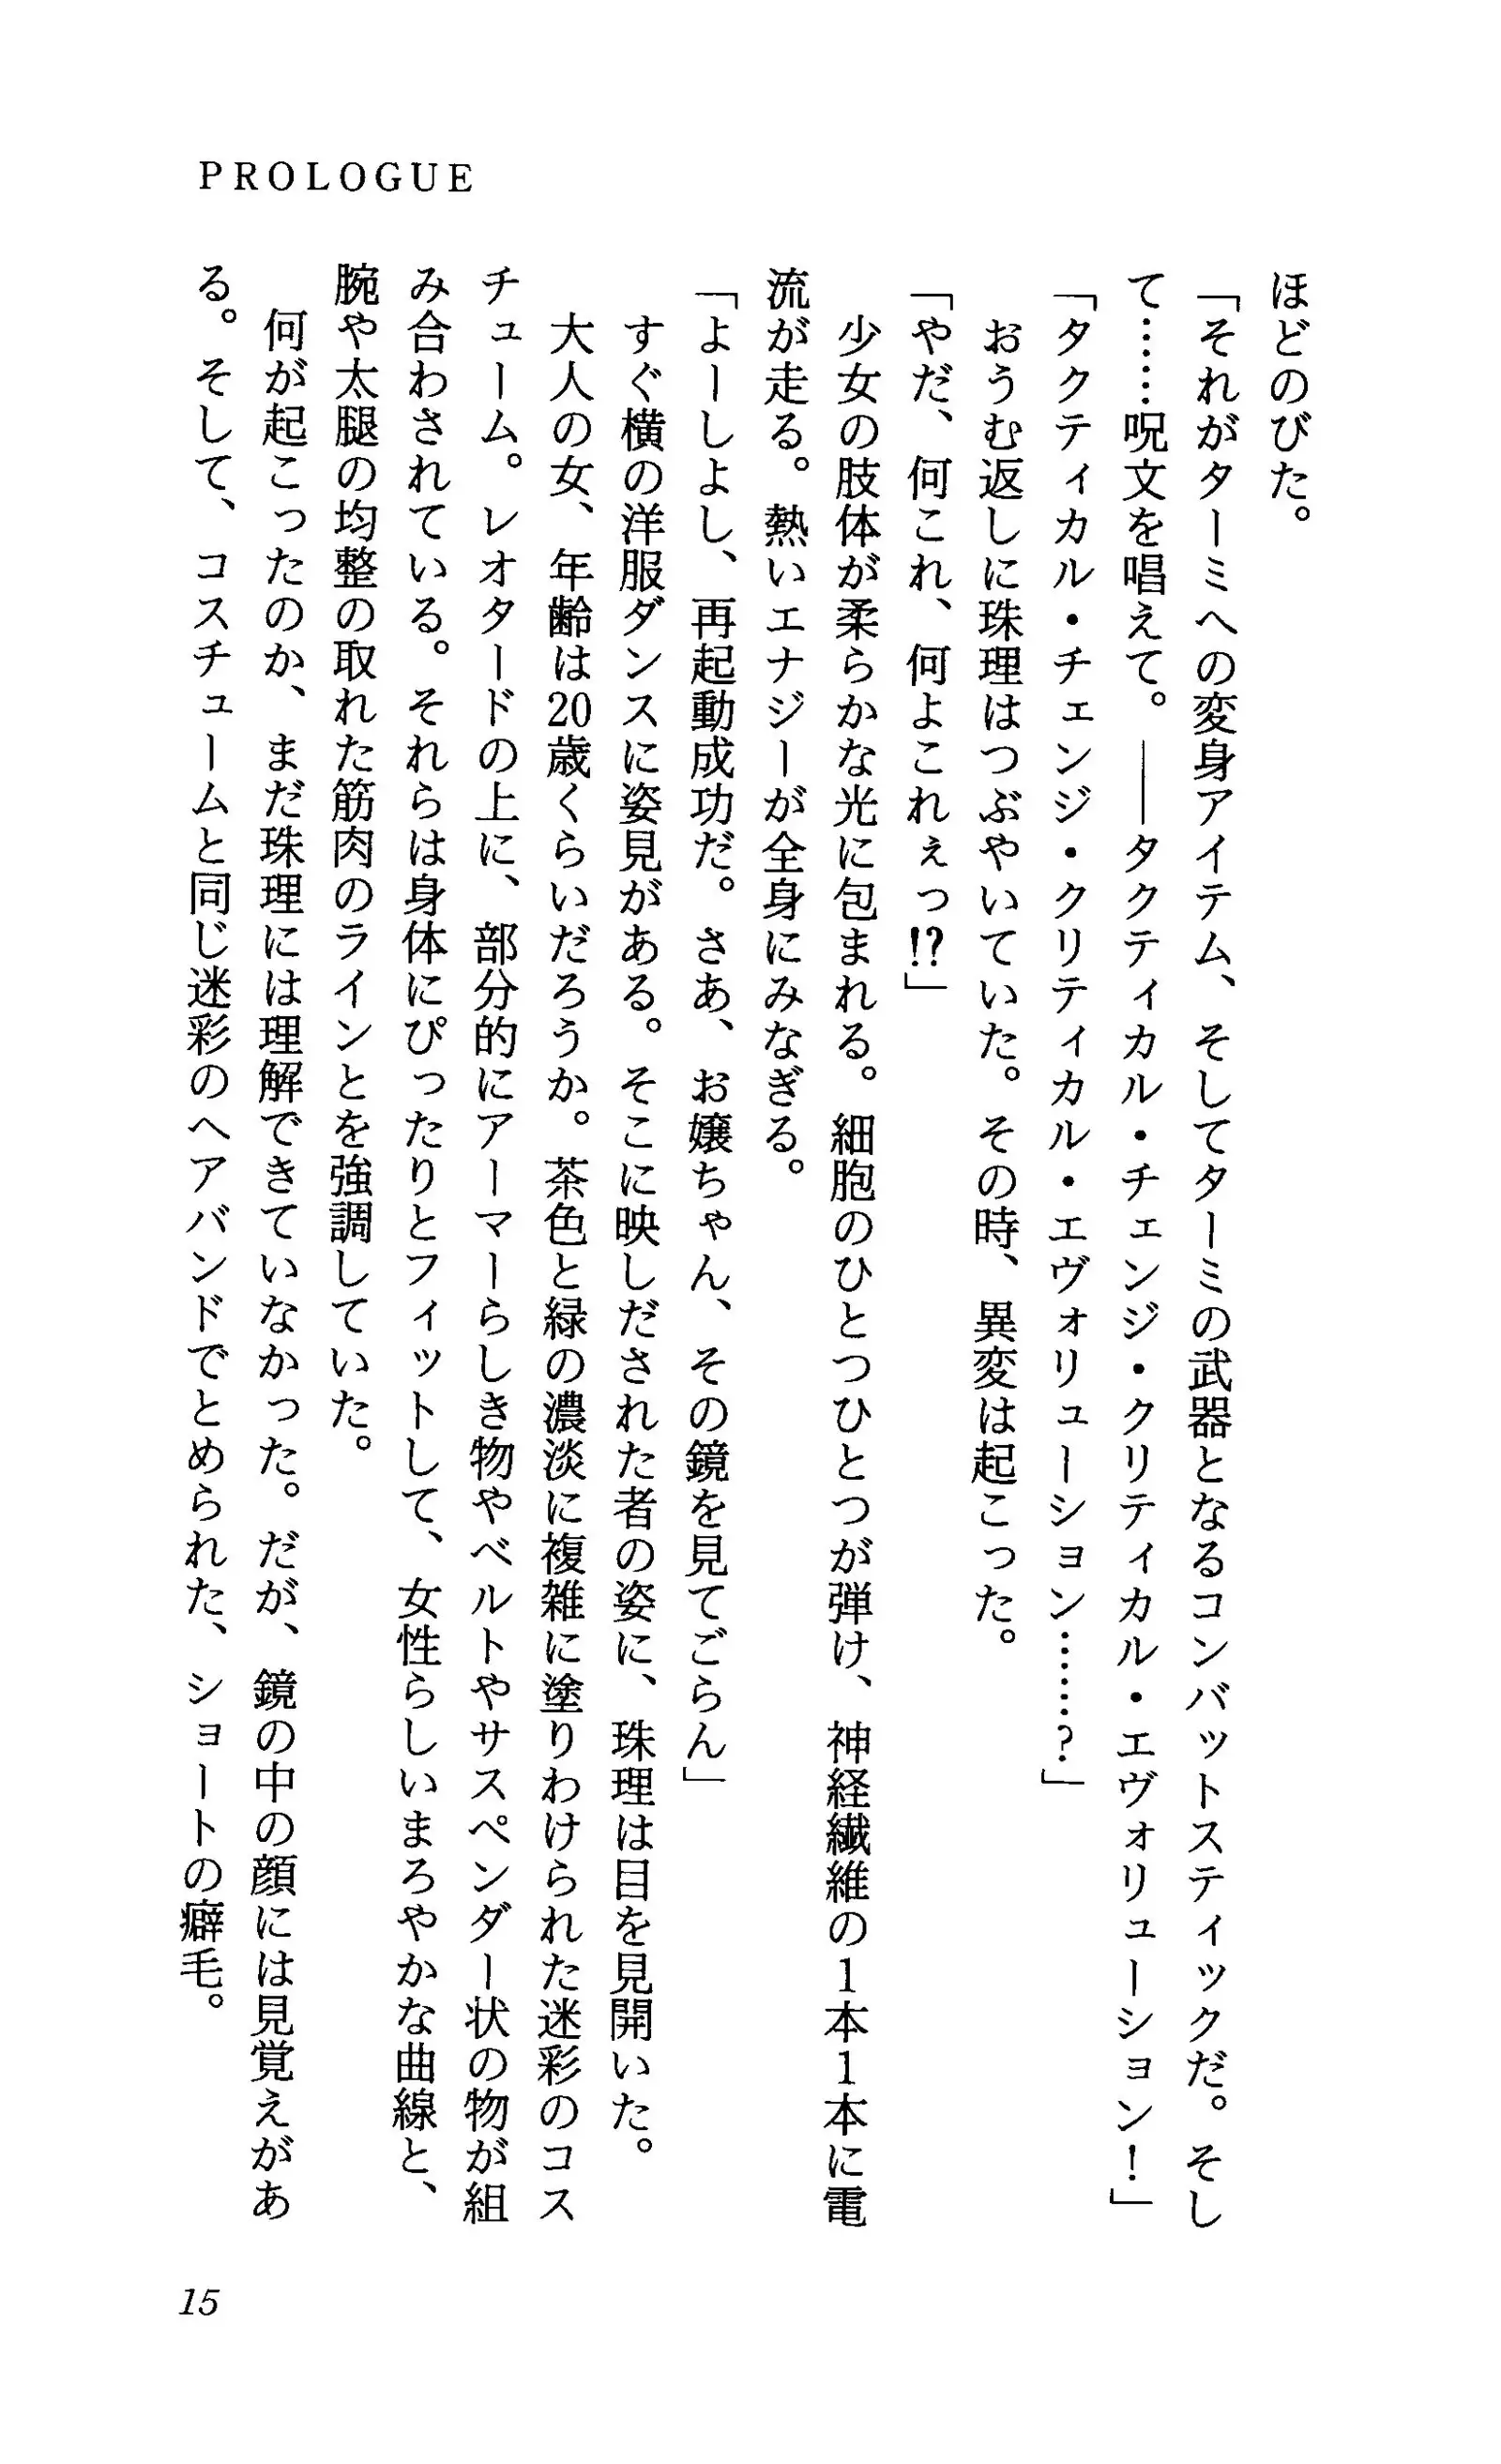 PROLOGUE
ほどのびた。
「それがターミへの変身アイテム、そしてターミの武器となるコンバットスティックだ。そし
て……呪文を唱えて。――タクティカル・チェンジ・クリティカル・エヴォリューション！」
「タクティカル・チェンジ・クリティカル・エヴォリューション……？」
おうむ返しに珠理はつぶやいていた。その時、異変は起こった。
「やだ、何これ、何よこれぇっ!?」
少女の肢体が柔らかな光に包まれる。細胞のひとつひとつが弾け、神経繊維の1本1本に電
流が走る。熱いエナジーが全身にみなぎる。
「よーしよし、再起動成功だ。さあ、お嬢ちゃん、その鏡を見てごらん」
すぐ横の洋服ダンスに姿見がある。そこに映しだされた者の姿に、珠理は目を見開いた。
大人の女、年齢は20歳くらいだろうか。茶色と緑の濃淡に複雑に塗りわけられた迷彩のコス
チューム。レオタードの上に、部分的にアーマーらしき物やベルトやサスペンダー状の物が組
み合わされている。それらは身体にぴったりとフィットして、女性らしいまろやかな曲線と、
腕や太腿の均整の取れた筋肉のラインとを強調していた。
何が起こったのか、まだ珠理には理解できていなかった。だが、鏡の中の顔には見覚えがあ
る。そして、コスチュームと同じ迷彩のヘアバンドでとめられた、ショートの癖毛。
15